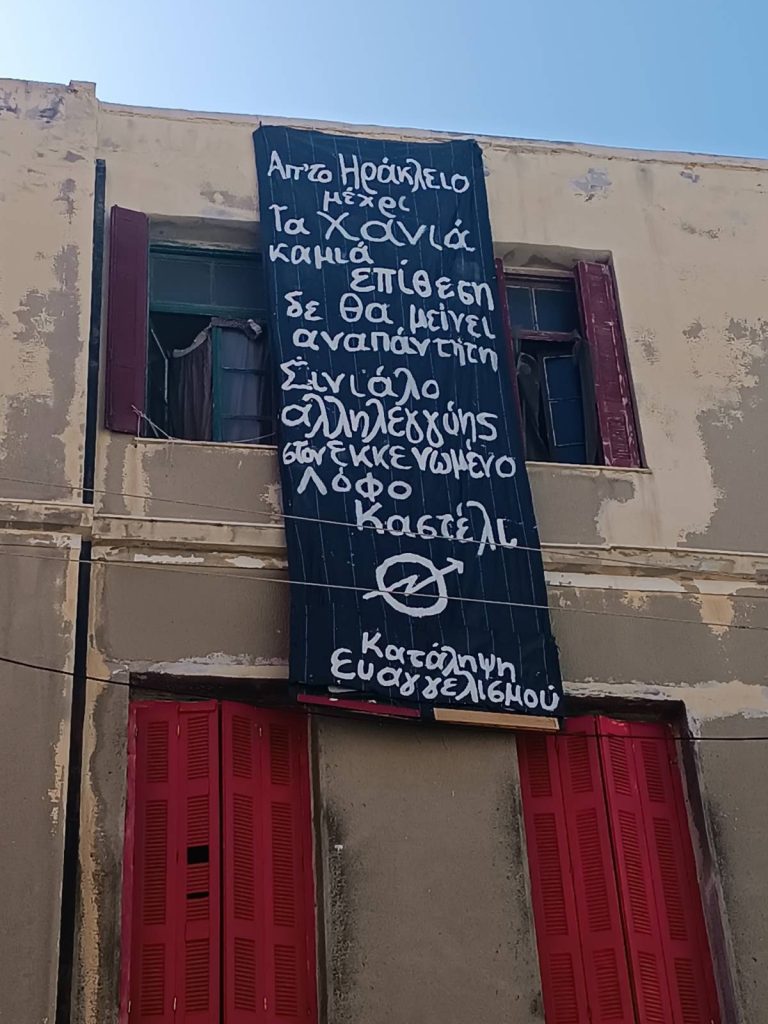 Απ'το Ηράκλειο
μέχρι
Τα Χανιά
καμιά
επίθεση
δε θα μείνει
αναπάντητη
Σινιάλο
αλληλεγγύης
στον εκκενωμένο
Λόφο
Καστέλι
Κατάληψη
Ευαγγελισμού